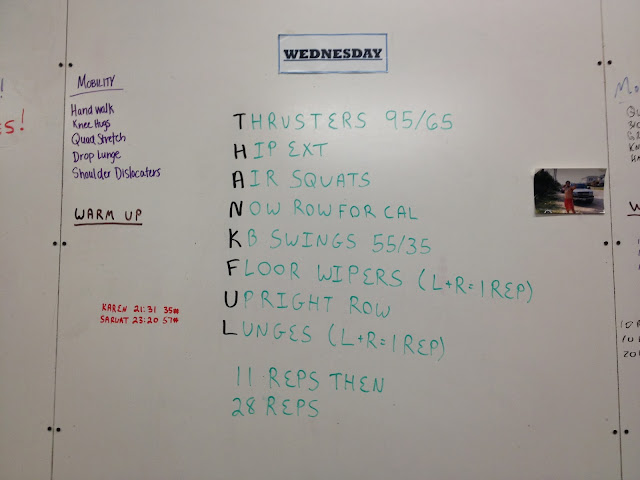 WEDNESDAY
MOBILITY
Hand walk
Knee Hugs
Quad Stretch
Drop Lunge
Shoulder Dislocaters
WARM UP
KAREN 21:31 35#
SARUAT 23:20 57#
THRUSTERS 95/65
HIP EXT
AIR SQUATS
NOW ROW FOR CAL
KB SWINGS 55/35
FLOOR WIPERS (L+R=1 REP)
UPRIGHT ROW
LUNGES (L+R=1 REP)
11 REPS THEN
28 REPS